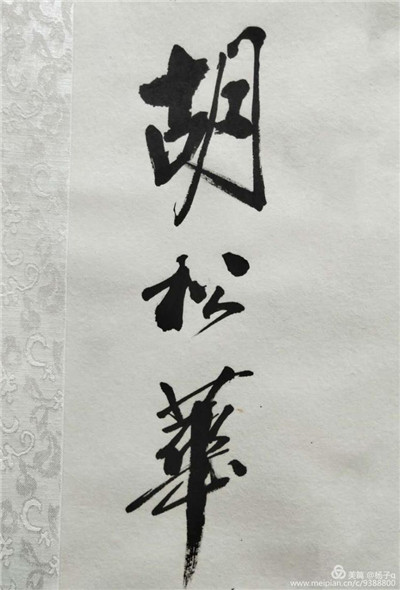 胡松華
美篇 @杨子q
www.meipian.cn/c/9388800